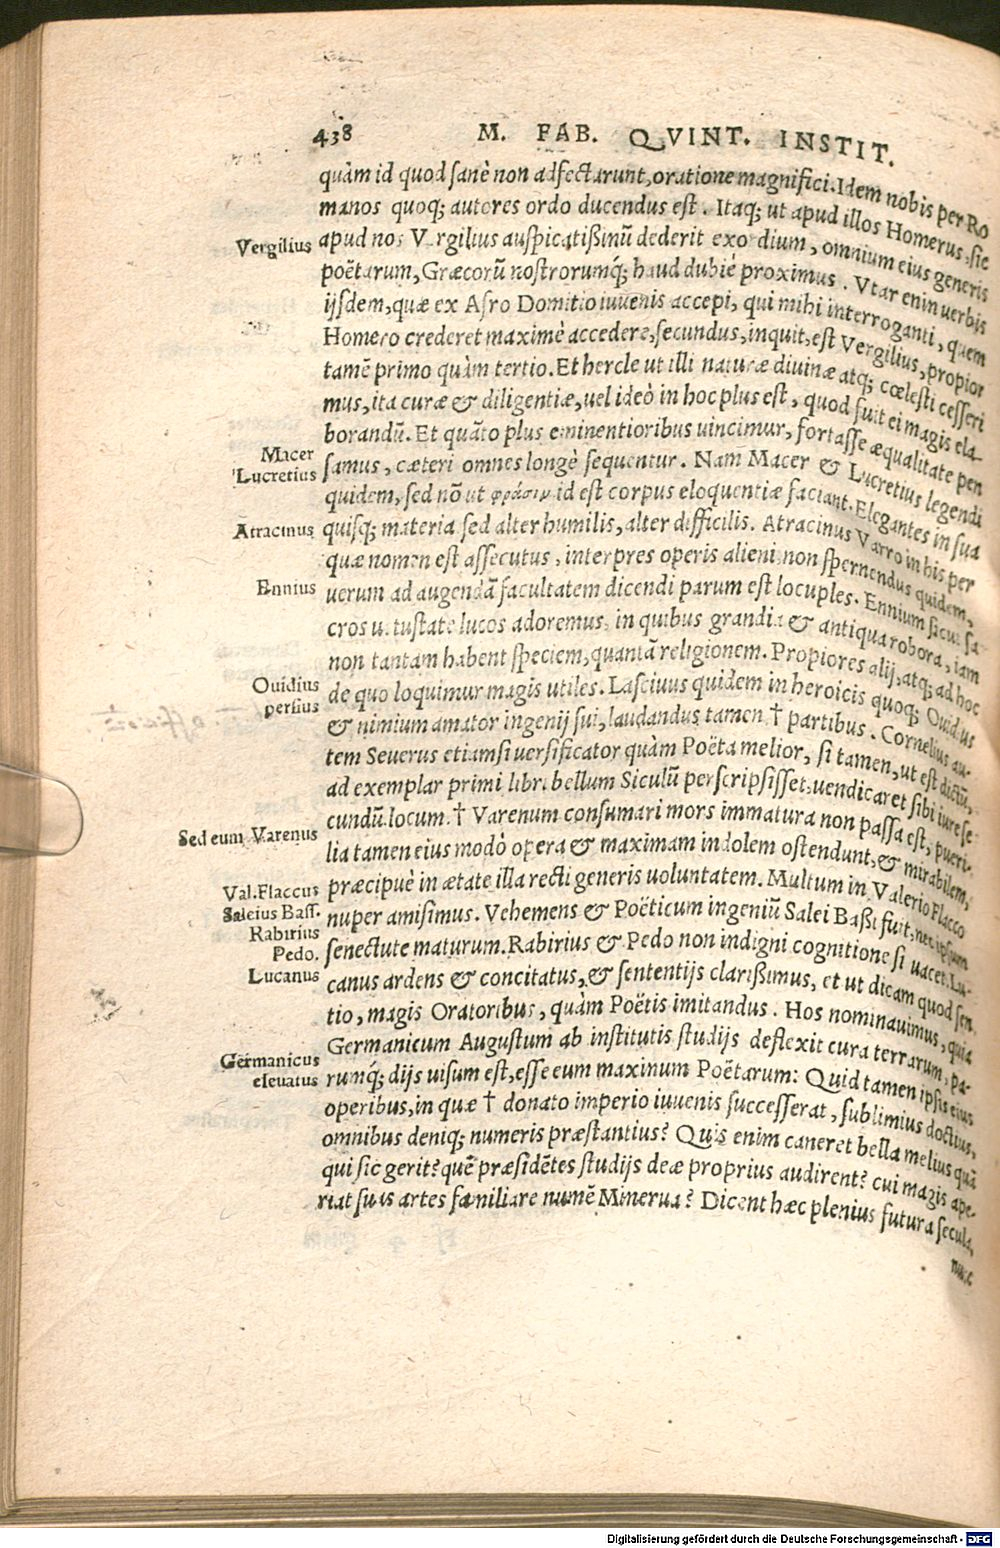 438 M. FAB. QVINT. INSTIT.
quàm id quod sanè non adfectarunt, oratione magnifici. Idem nobis per Ro
manos quoq; autores ordo ducendus est. Itaq; ut apud illos Homerus, sic
Vergilius
apud nos Vergilius auspicatißimū dederit exordium, omnium eius generis
poëtarum, Græcorū nostrorumq́; haud dubiè proximus. Vtar enim uerbis
ijsdem, quæ ex Afro Domitio iuuenis accepi, qui mihi interroganti, quem
Homero crederet maximè accedere, secundus, inquit, est Vergilius, propior
tamē primo quàm tertio. Et hercle ut illi naturæ diuinæ atq; cœlesti cesseri
mus, ita curæ & diligentiæ, uel ideò in hoc plus est, quod fuit ei magis ela-
borandū. Et quāto plus eminentioribus uincimur, fortasse æqualitate pen
Macer
samus, cæteri omnes longè sequentur. Nam Macer & Lucretius legendi
Lucretius
quidem, sed nō ut φράσιν id est corpus eloquentiæ faciant. Elegantes in sua
Atracinus
quisq; materia sed alter humilis, alter difficilis. Atracinus Varro in his per
quæ nomen est assecutus, interpres operis alieni non spernendus quidem,
Ennius
uerum ad augendā facultatem dicendi parum est locuples. Ennium sicut sa-
cros uetustate lucos adoremus, in quibus grandia & antiqua robora, iam
non tantam habent speciem, quantā religionem. Propiores alij, atq; ad hoc
Ouidius
de quo loquimur magis utiles. Lasciuus quidem in heroicis quoq; Ouidius
persius
& nimium amator ingenij sui, laudandus tamen † partibus. Cornelius au-
tem Seuerus etiamsi uersificator quàm Poëta melior, si tamen, ut est dictū,
ad exemplar primi libri bellum Siculū perscripsisset, uendicaret sibi iure se
cundū locum. † Varenum consumari mors immatura non passa est, pueri-
Sed eum Varenus
lia tamen eius modò opera & maximam indolem ostendunt, & mirabilem,
præcipuè in ætate illa recti generis uoluntatem. Multum in Valerio Flacco
Val. Flaccus
nuper amisimus. Vehemens & Poëticum ingeniū Salei Baßi fuit, nec ipsum
Saleius Bass.
Rabirius
senectute maturum. Rabirius & Pedo non indigni cognitione si uacet. Lu-
Pedo.
Lucanus
canus ardens & concitatus, & sententijs clarißimus, et ut dicam quod sen
tio, magis Oratoribus, quàm Poëtis imitandus. Hos nominauimus, quia
Germanicum Augustum ab institutis studijs deflexit cura terrarum, pa-
Germanicus
eleuatus
rumq́; dijs uisum est, esse eum maximum Poëtarum: Quid tamen ipsis eius
operibus, in quæ † donato imperio iuuenis successerat, sublimius doctius,
omnibus deniq; numeris præstantius? Quis enim caneret bella melius quā
qui sic gerit? quē præsidētes studijs deæ proprius audirent? cui magis ape-
riat suas artes familiare numē Minerua? Dicent hæc plenius futura secula,
nunc
Digitalisierung gefördert durch die Deutsche Forschungsgemeinschaft - DFG